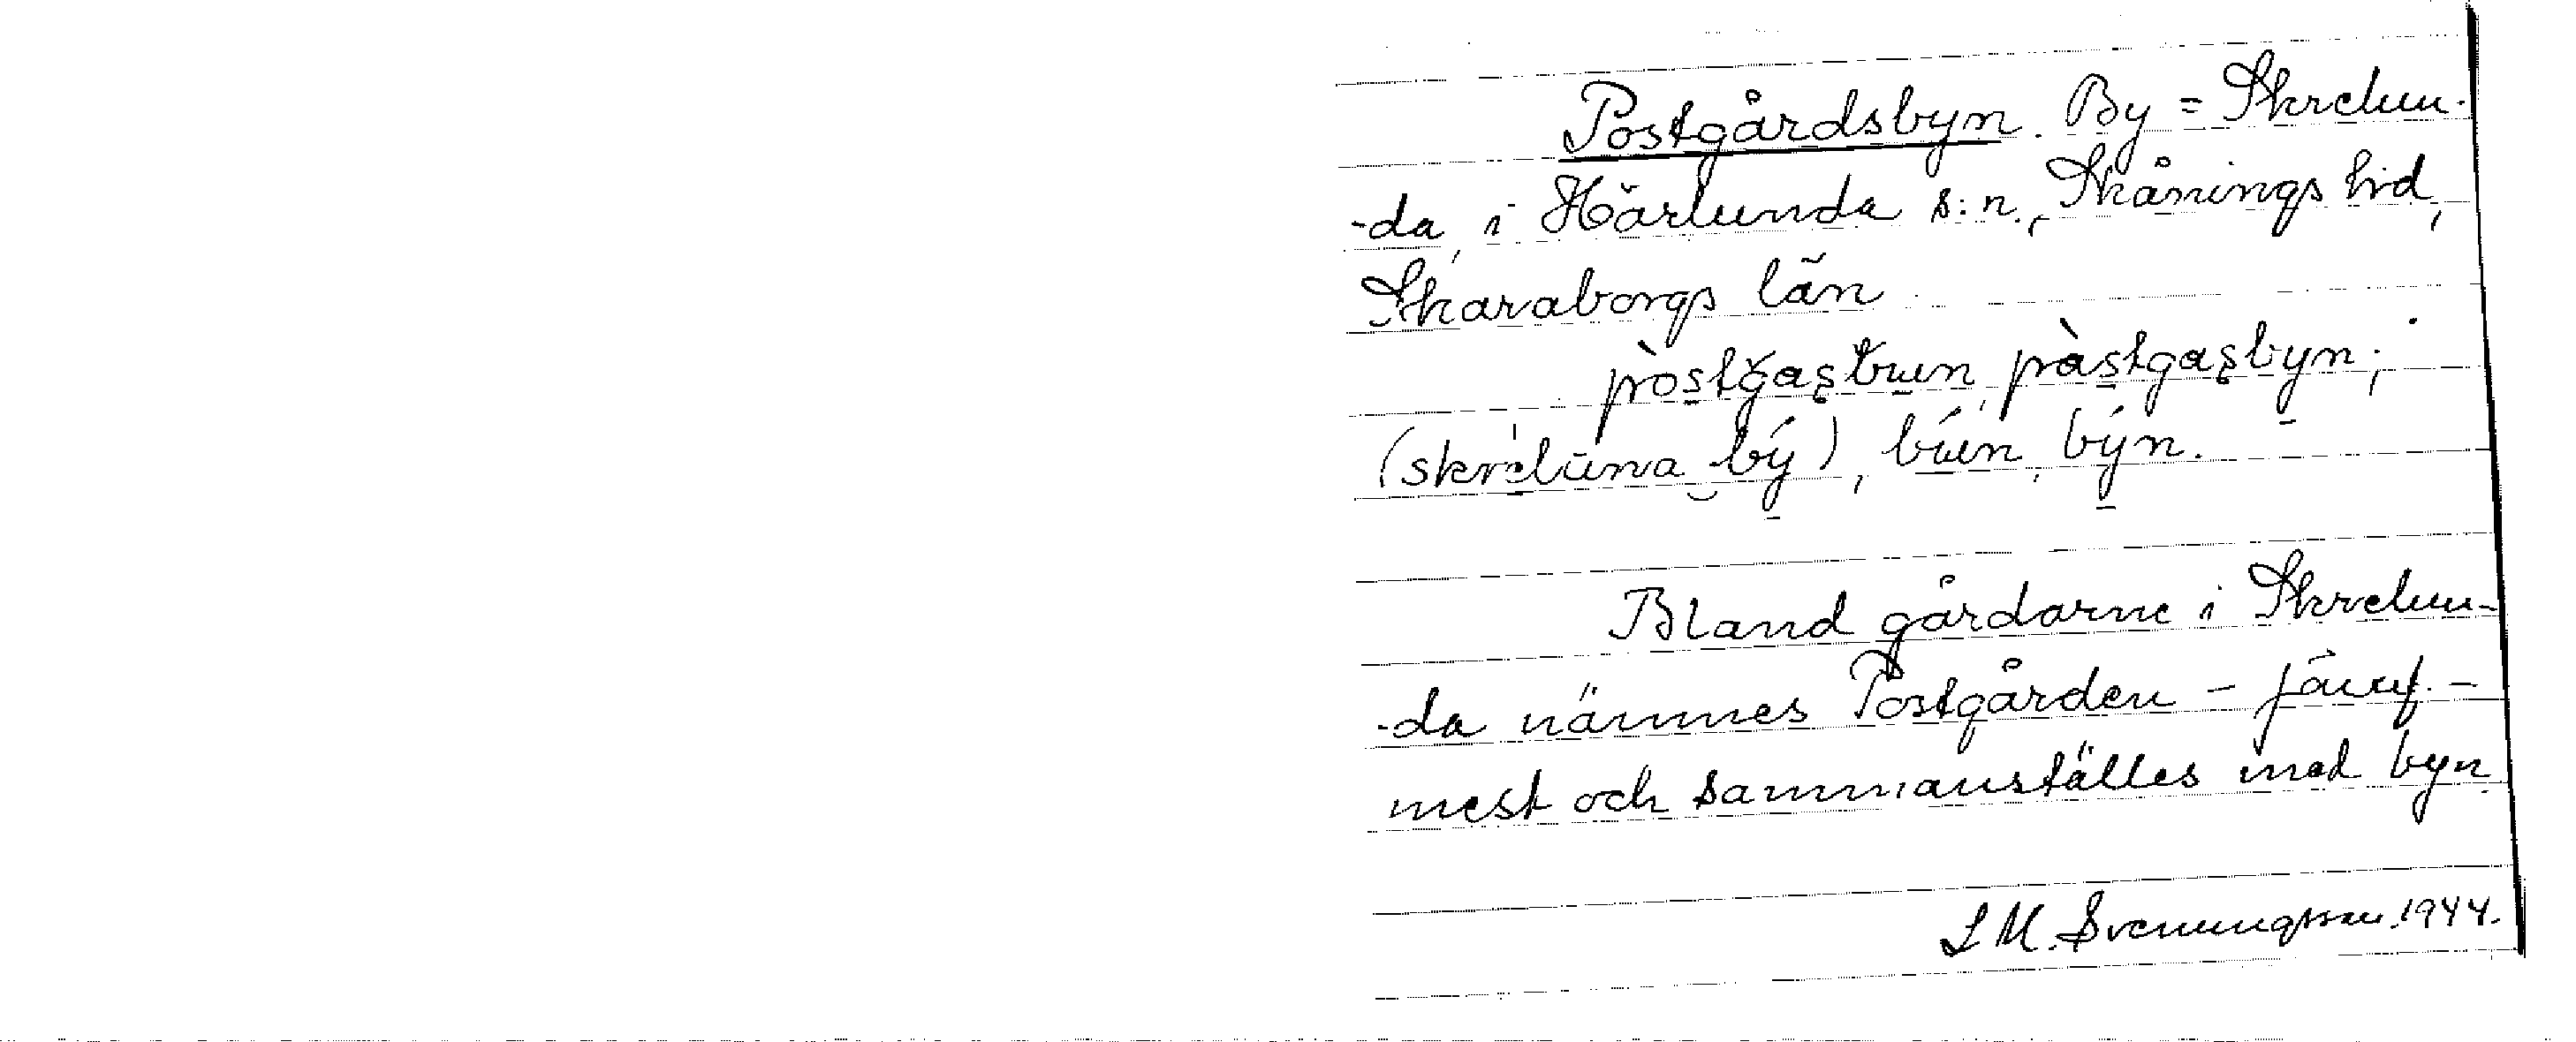 Postgårdsbyn. By = Skrelun-
-da, i Härlunda s:n, Skånings hd,
Skaraborgs län
pòstgasbyen, pàstgasbyn;
(skrelúna bý), býen, býn.
Bland gårdarne i Skrelun-
-da nämnes Postgården – jämf. –
mest och sammanställes med byn
S M. Svenungsson. 1944.